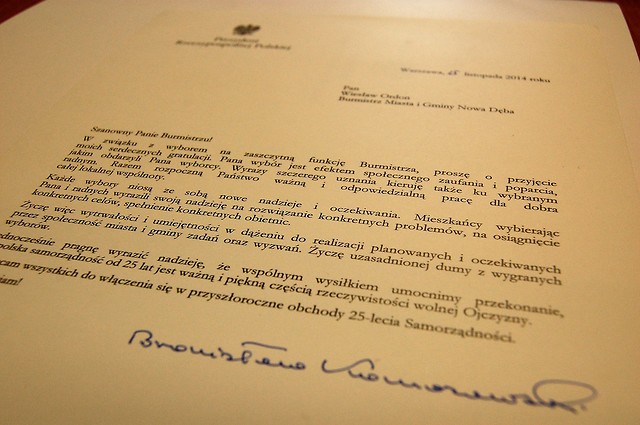 Prezydent
Rzeczypospolitej Polskiej
Warszawa, listopada 2014 roku
Pan
Wiesław Ordon
Burmistrz Miasta i Gminy Nowa Dęba
Szanowny Panie Burmistrzu!
W związku z wyborem na zaszczytną funkcję Burmistrza, proszę o przyjęcie
moich serdecznych gratulacji. Pana wybór jest efektem społecznego zaufania i poparcia,
jakim obdarzyli Pana wyborcy. Wyrazy szczerego uznania kieruję także ku wybranym
radnym. Razem rozpoczną Państwo ważną i odpowiedzialną pracę dla dobra
całej lokalnej wspólnoty.
Każde wybory niosą ze sobą nowe nadzieje i oczekiwania. Mieszkańcy wybierając
Pana i radnych wyrazili swoją nadzieję na rozwiązanie konkretnych problemów, na osiągnięcie
konkretnych celów, spełnienie konkretnych obietnic.
Życzę więc wytrwałości i umiejętności w dążeniu do realizacji planowanych i oczekiwanych
przez społeczność miasta i gminy zadań oraz wyzwań. Życzę uzasadnionej dumy z wygranych
wyborów.
ednocześnie pragnę wyrazić nadzieję, że wspólnym wysiłkiem umocnimy przekonanie,
polska samorządność od 25 lat jest ważną i piękną częścią rzeczywistości wolnej Ojczyzny.
cam wszystkich do włączenia się w przyszłoroczne obchody 25-lecia Samorządności.
iam!
Bronisław Komorowski